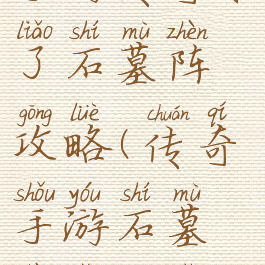 liǎo shí mù zhèn
了石墓阵
gōng lüè chuán qí
攻略(传奇
shǒu yóu shí mù
手游石墓